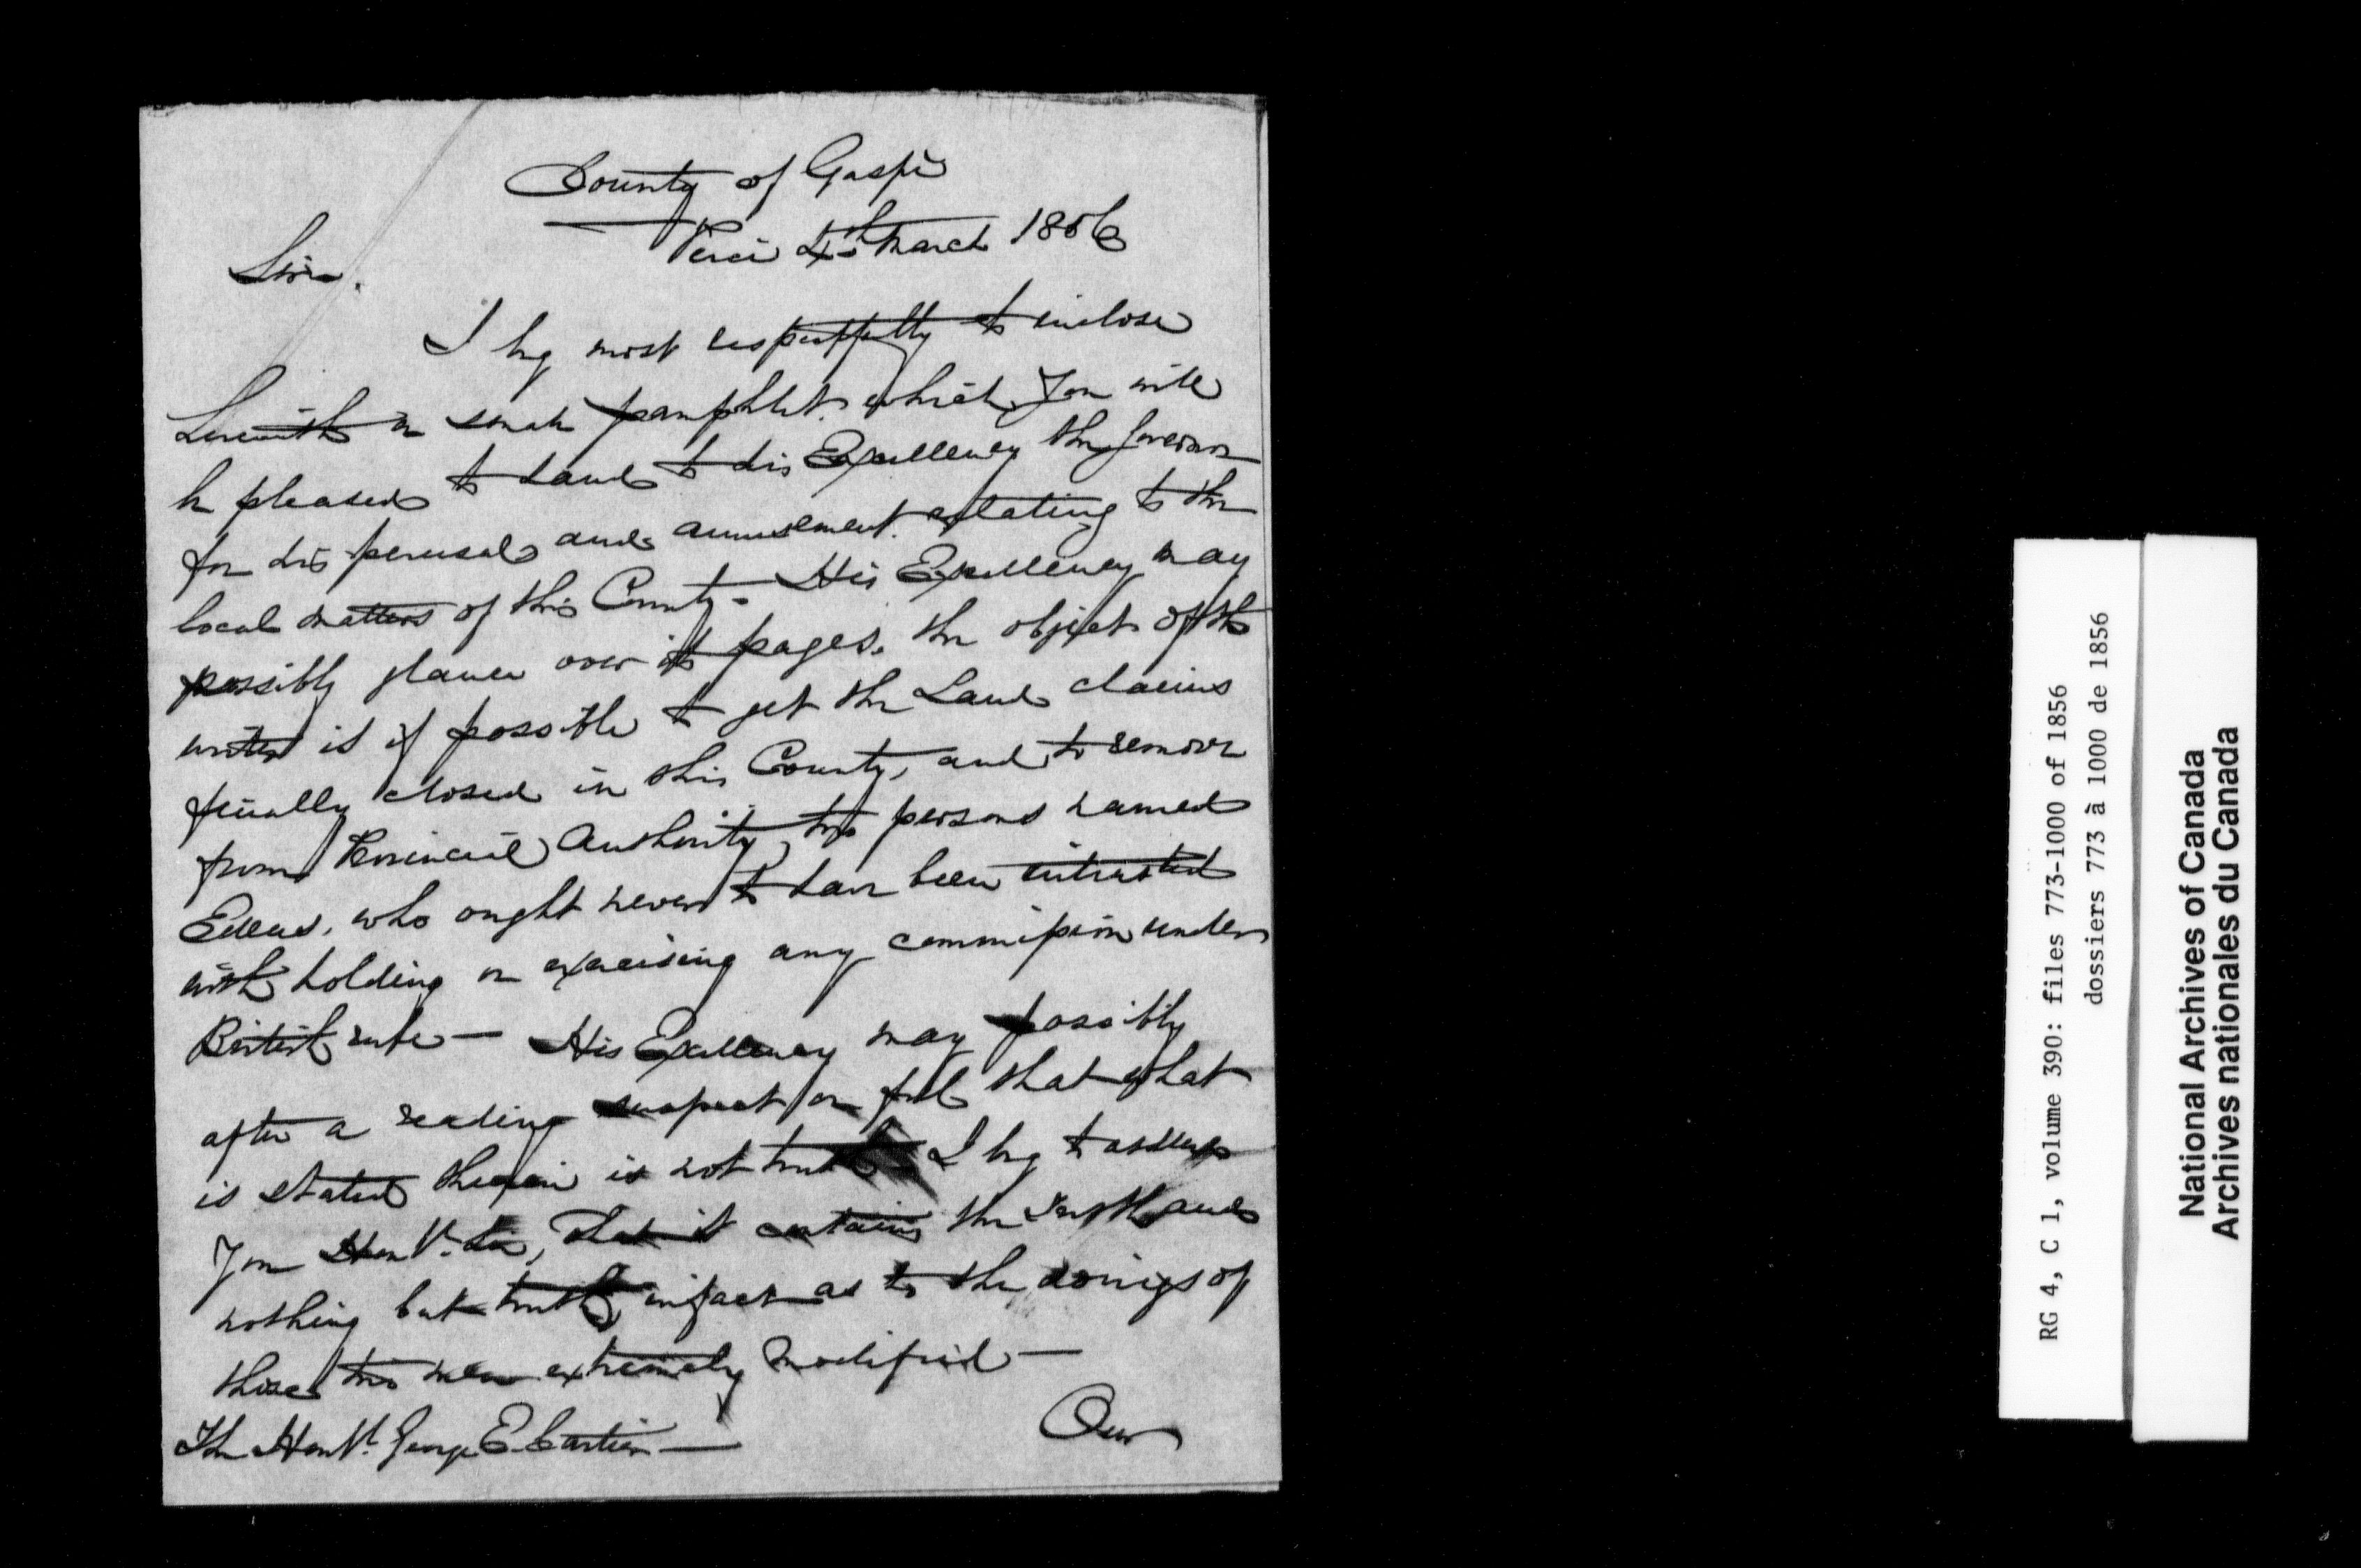 County of Gaspé
Percé 4th March 1856
Sir.
I beg most respectfully to inclose
herewith a small pamphlet. which You will
be pleased to hand to His Excellency the Governor
for his perusal and amusement. relating to the
local matters of this County - His Excellency may
possibly glance over its pages. the object of the
writer is if possible to get the Land claims
finally closed in this County, and to remove
from Provincial Authority, two persons named
who ought never to have been intrusted
with holding or exercising any commission under
British rule — His Excellency may possibly
after a reading suspect or feel that what
is stated therein is not truth I beg to assure
You Honble. Sir, that it contains the truth and
nothing but truth, in fact as to the doings of
those two men extremely modified —
The Honble. George E. Cartier —
Our
RG 4, C 1, volume 390: files 773-1000 of 1856
dossiers 773 à 1000 de 1856
National Archives of Canada
Archives nationales du Canada